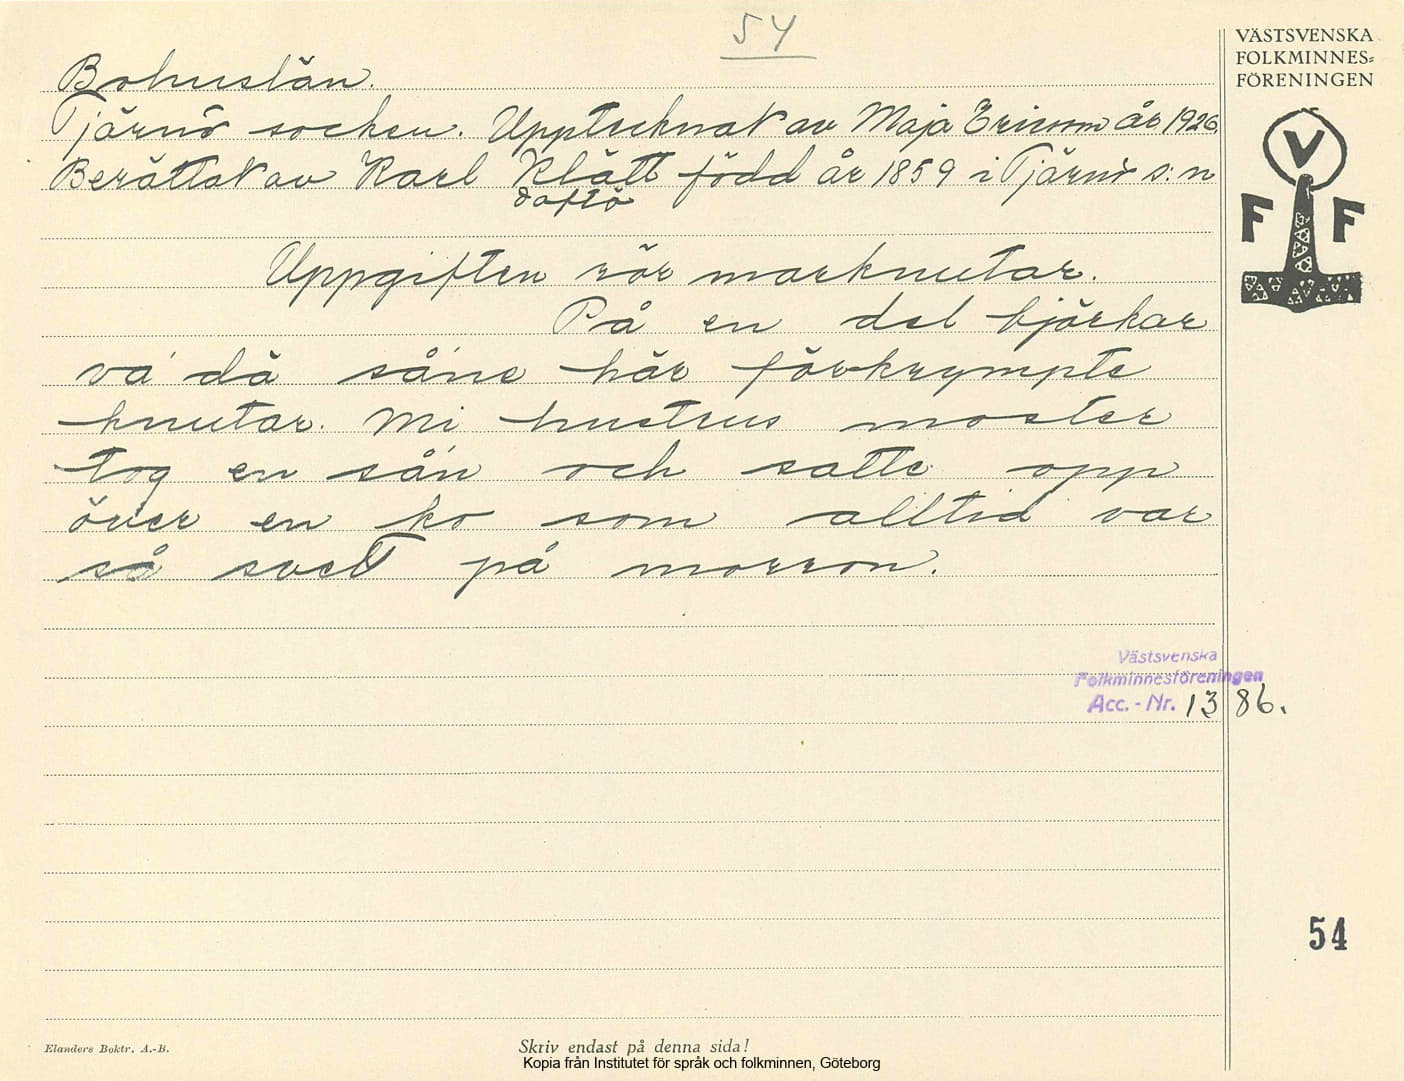 54
VÄSTSVENSKA
FOLKMINNES=
FÖRENINGEN
V
F F
Bohuslän.
Tjärnö socken. Upptecknat av Maja Ericson år 1926
Berättat av Karl Klätt född år 1859 i Tjärnö s:n
Daftö
Uppgiften rör marknutar.
På en del björkar
va' dä såne här förkrympte
knutar. Mi hustrus moster
tog en så'n och satte opp
över en ko som alltid var
så svet på morron.
Västsvenska
Folkminnesföreningen
Acc.-Nr. 1386.
54
Elanders Boktr. A.-B.
Skriv endast på denna sida!
Kopia från Institutet för språk och folkminnen, Göteborg